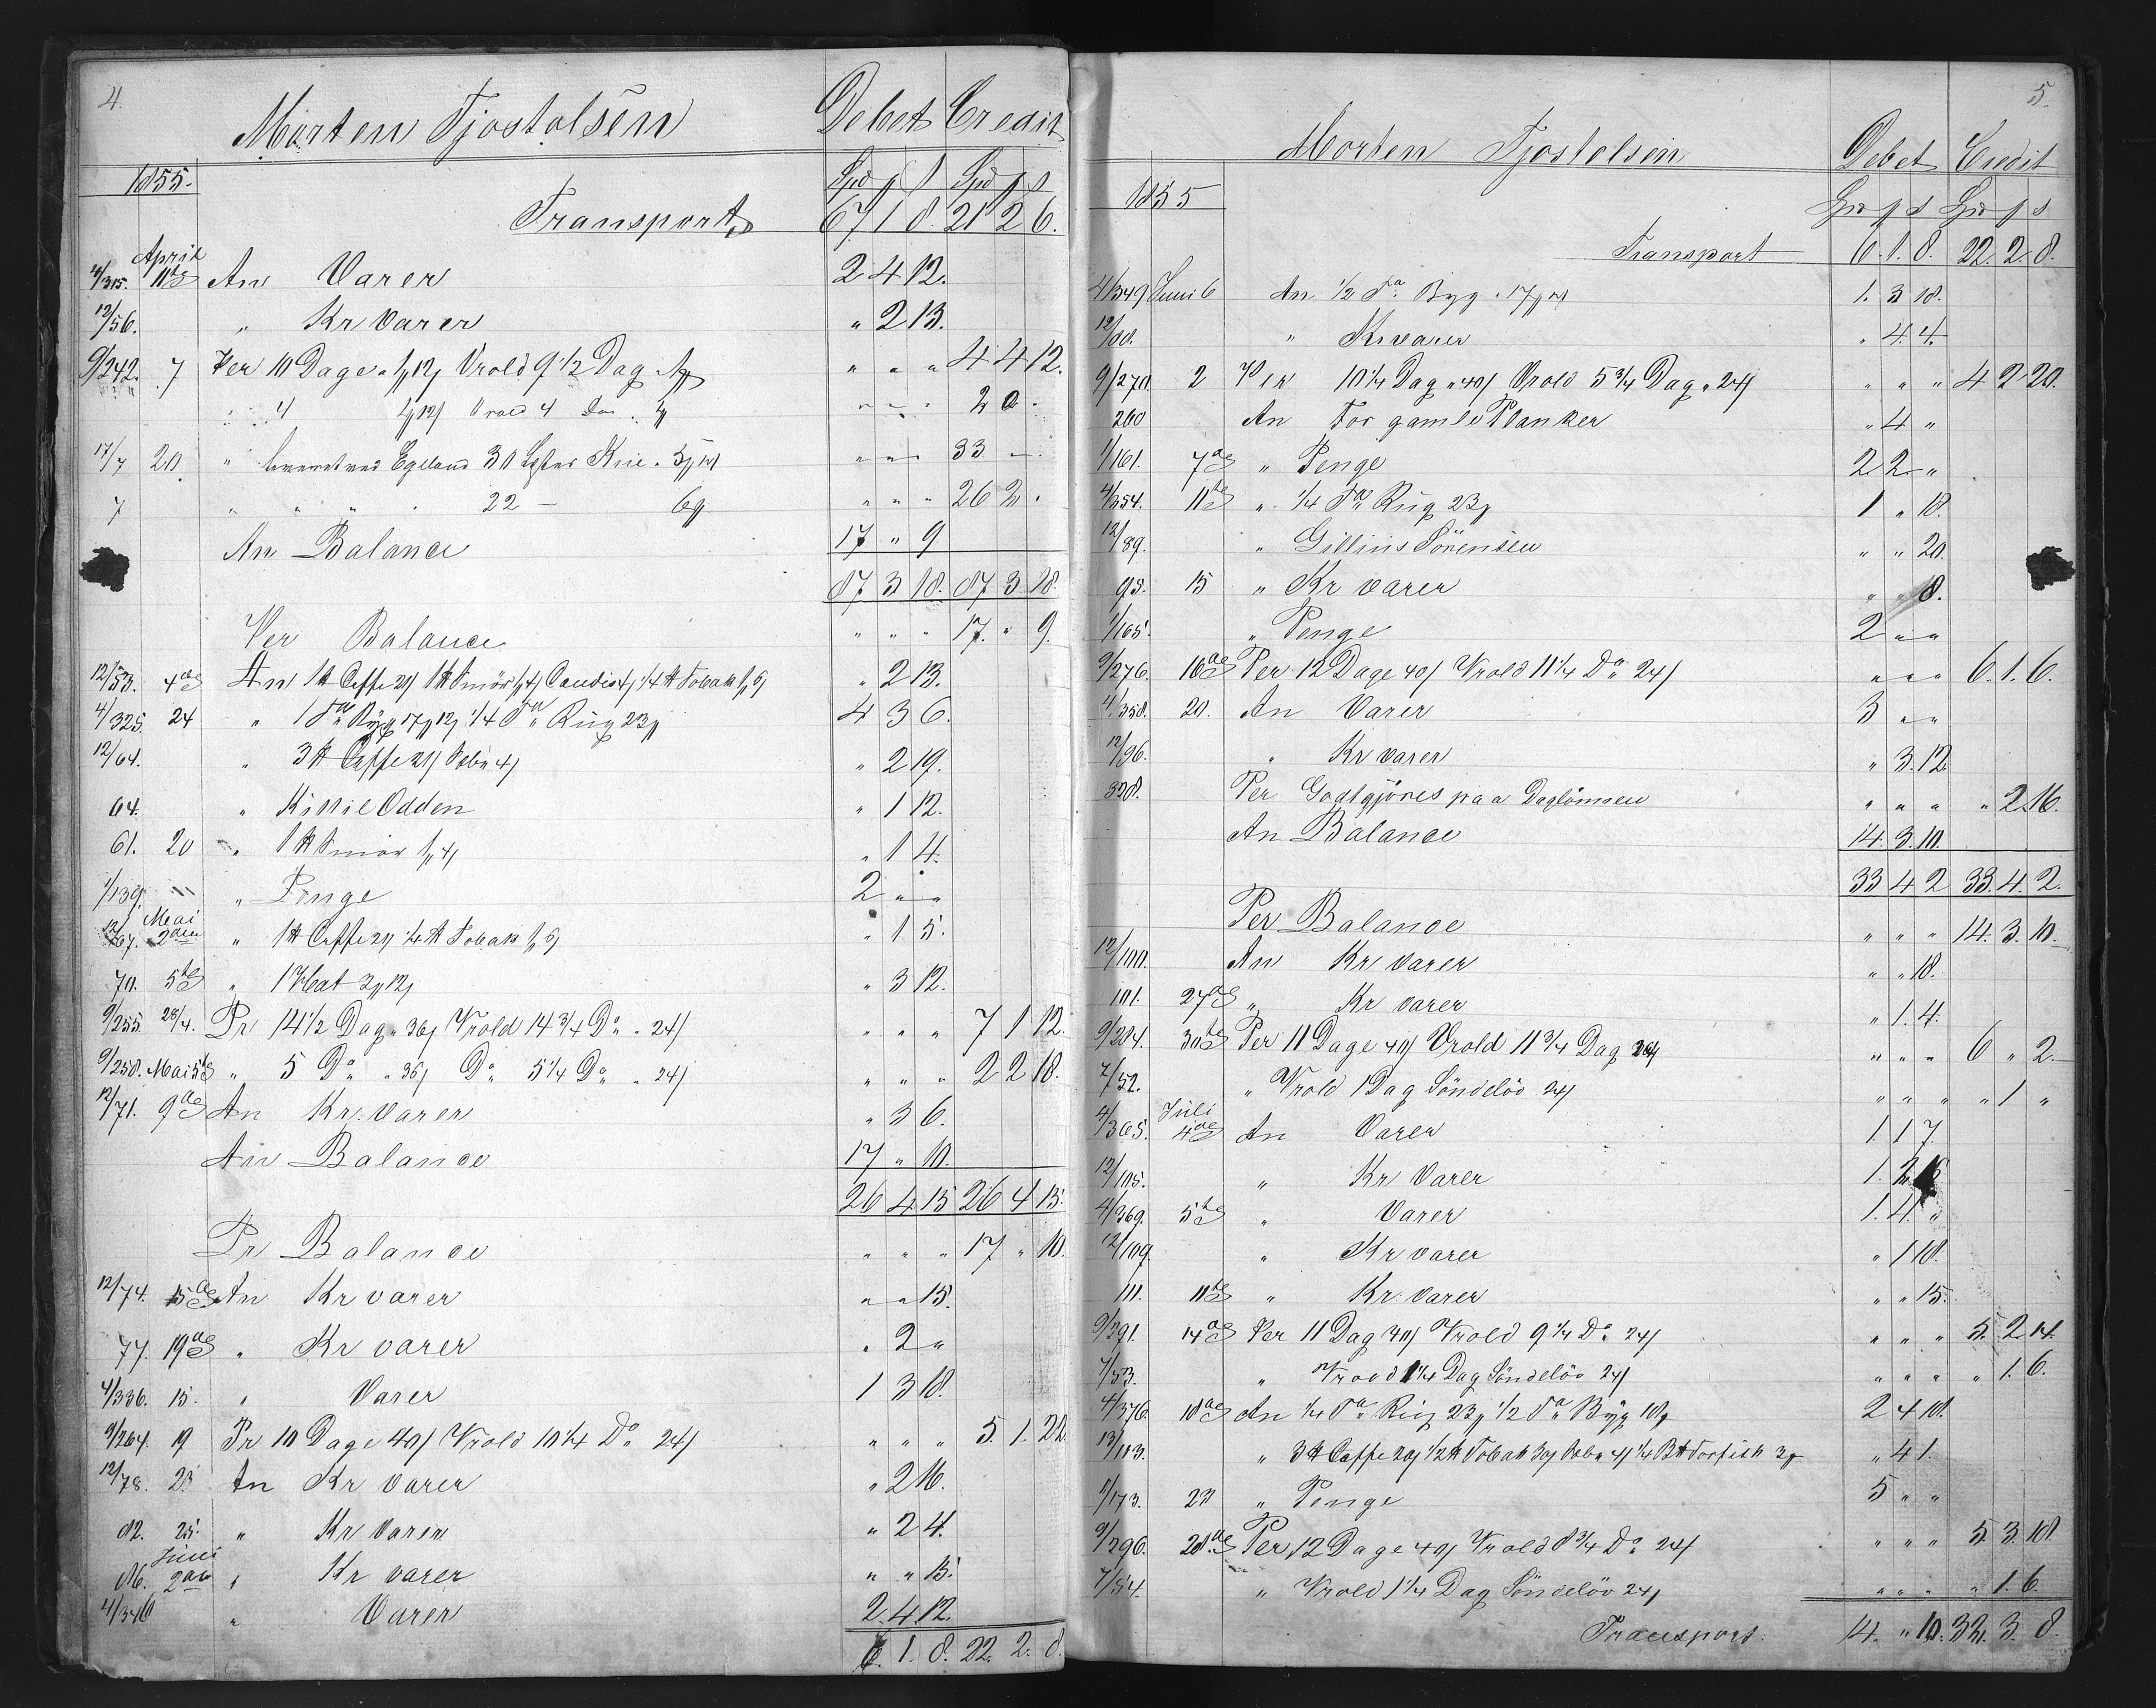 4.
Morten Tjostolsen Debet Credit
1855. Spd ß Spd ß
Transport 67 1 8. 21 2 6.
April
4/315. 11te An Varer 2 4 12.
12/56. " Kr Varer " 2 13.
9/242. 7 Per 10 Dage Vrold 9 1/2 Dag " " " 4 4 12.
4 Vrold 4
17/7 20 " Egeland 30 Knie " " " 33
7 " " " 22 — " " " 26 2 "
An Balance 17 " 9
87 3 18. 87 3 18.
Per Balance " " " 17. " 9.
12/53. 4de An 1 ℔ Caffe 21/ 1 ℔ Smör Candis 4/ 1/4 ℔ Tobak " 2 13.
4/325. 24 " 1 Tde Byg 17 12/ 1/4 Tde Rug 23 4 3 6.
12/64. " 3 ℔ Caffe 21/ 4/ " 2 19.
64. " Odden " 1 12.
61. 20 " 1 ℔ Smör " 1 4.
1/139. " " Penge 2 " "
Mai
12/67. 2den " 1 ℔ Caffe 21/ 1/4 ℔ Tobak " 1 5.
70. 5te " 1 Hat 3 12/ " 3 12.
9/255. 28/4. Pr 14 1/2 Dag " 36/ Vrold 14 3/4 Do " 24/ " " " 7 1 12.
9/258. Mai 5te " 5 Do " 36/ Do 5 1/4 Do " 24/ " " " 2 2 18.
12/71. 9de An Kr. Varer " 3 6.
An Balance 17 " 10.
26 4 15 26 4 15.
Pr Balance " " " 17 " 10.
12/74. 15de An Kr varer " " 15.
77. 19de " Kr varer " 2 "
4/336. 15. " Varer 1 3 18.
9/264. 19 Pr 10 Dage 40/ Vrold 10 1/4 Do 24/ " " " 5. 1. 22.
12/78. 23 An Kr Varer " 2 16.
82. 25. " Kr Varer " 2 4.
Juni
86. 2den " Kr varer " " 15.
4/346 " Varer 2. 4 12.
6. 1. 8. 22. 2. 8.
5.
Morten Tjostolsen Debet Credit
1855 Spd ß Spd ß
Transport 6. 1. 8. 22. 2. 8.
4/349 Juni 6 An 1/2 Tde Byg 1. 3 18.
12/88. " Kr varer " 4. 4.
9/270. 2 Per 10 1/4 Dag " 40/ Vrold 5 3/4 Dag " 24/ " " " 4 2 20.
260 An For gamle Planker " 4 "
1/161. 7de " Penge 2 2 "
4/354. 11te " 1/4 Tde Rug 23 1 " 18.
12/89. " Sörensen " " 20.
95. 15 " Kr varer " " 8.
1/165. " Penge 2 " "
9/276. 16de Per 12 Dage 40/ Vrold 11 1/4 Do 24/ " " " 6. 1. 6.
4/358. 20. An Varer 3 " "
12/96. " Kr varer " 3. 12.
328. Per Godtgjöres paa " " " " 2. 16.
An Balance 14. 3. 10.
33 4 2 33. 4. 2.
Per Balance " " " 14. 3. 10.
12/100. An Kr varer " " 18.
101. 27de " Kr varer " 1. 4.
9/284. 30te Per 11 Dage 40/ Vrold 11 3/4 Dag 24/ " " " 6 " 2.
7/52. " Vrold 1 Dag Söndelöv 24/ " " " " 1 "
Juli
4/365. 4de An Varer 1. 1 7.
12/105. " Kr Varer 1. 2
4/369. 5te " Varer 1. 4. "
12/109. " Kr varer " 1 18.
111. 11te " Kr varer " " 15.
9/291. 14de Per 11 Dag 40/ Vrold 9 1/4 Do 24/ " " " 5. 2. 14.
7/53. " Vrold 1 1/4 Dag Söndelöv 24/ " " " " 1. 6.
4/376. 18de An 1/4 Tde Rug 23 1/2 Tde Byg 18 2 4 18.
12/113. " 3 ℔ Caffe 20/ 1/2 ℔ Tobak 30/ 4/ 1/4 B℔ Torfisk " 4 1.
1/173. 23 " Penge 5 " "
9/296. 28de Per 12 Dage 40/ Vrold 8 3/4 Do 24/ " " " 5. 3. 18.
7/54. " Vrold 1 1/4 Dag Söndelöv 24/ " " " " 1. 6.
Transport 14. " 10. 32. 3. 8.